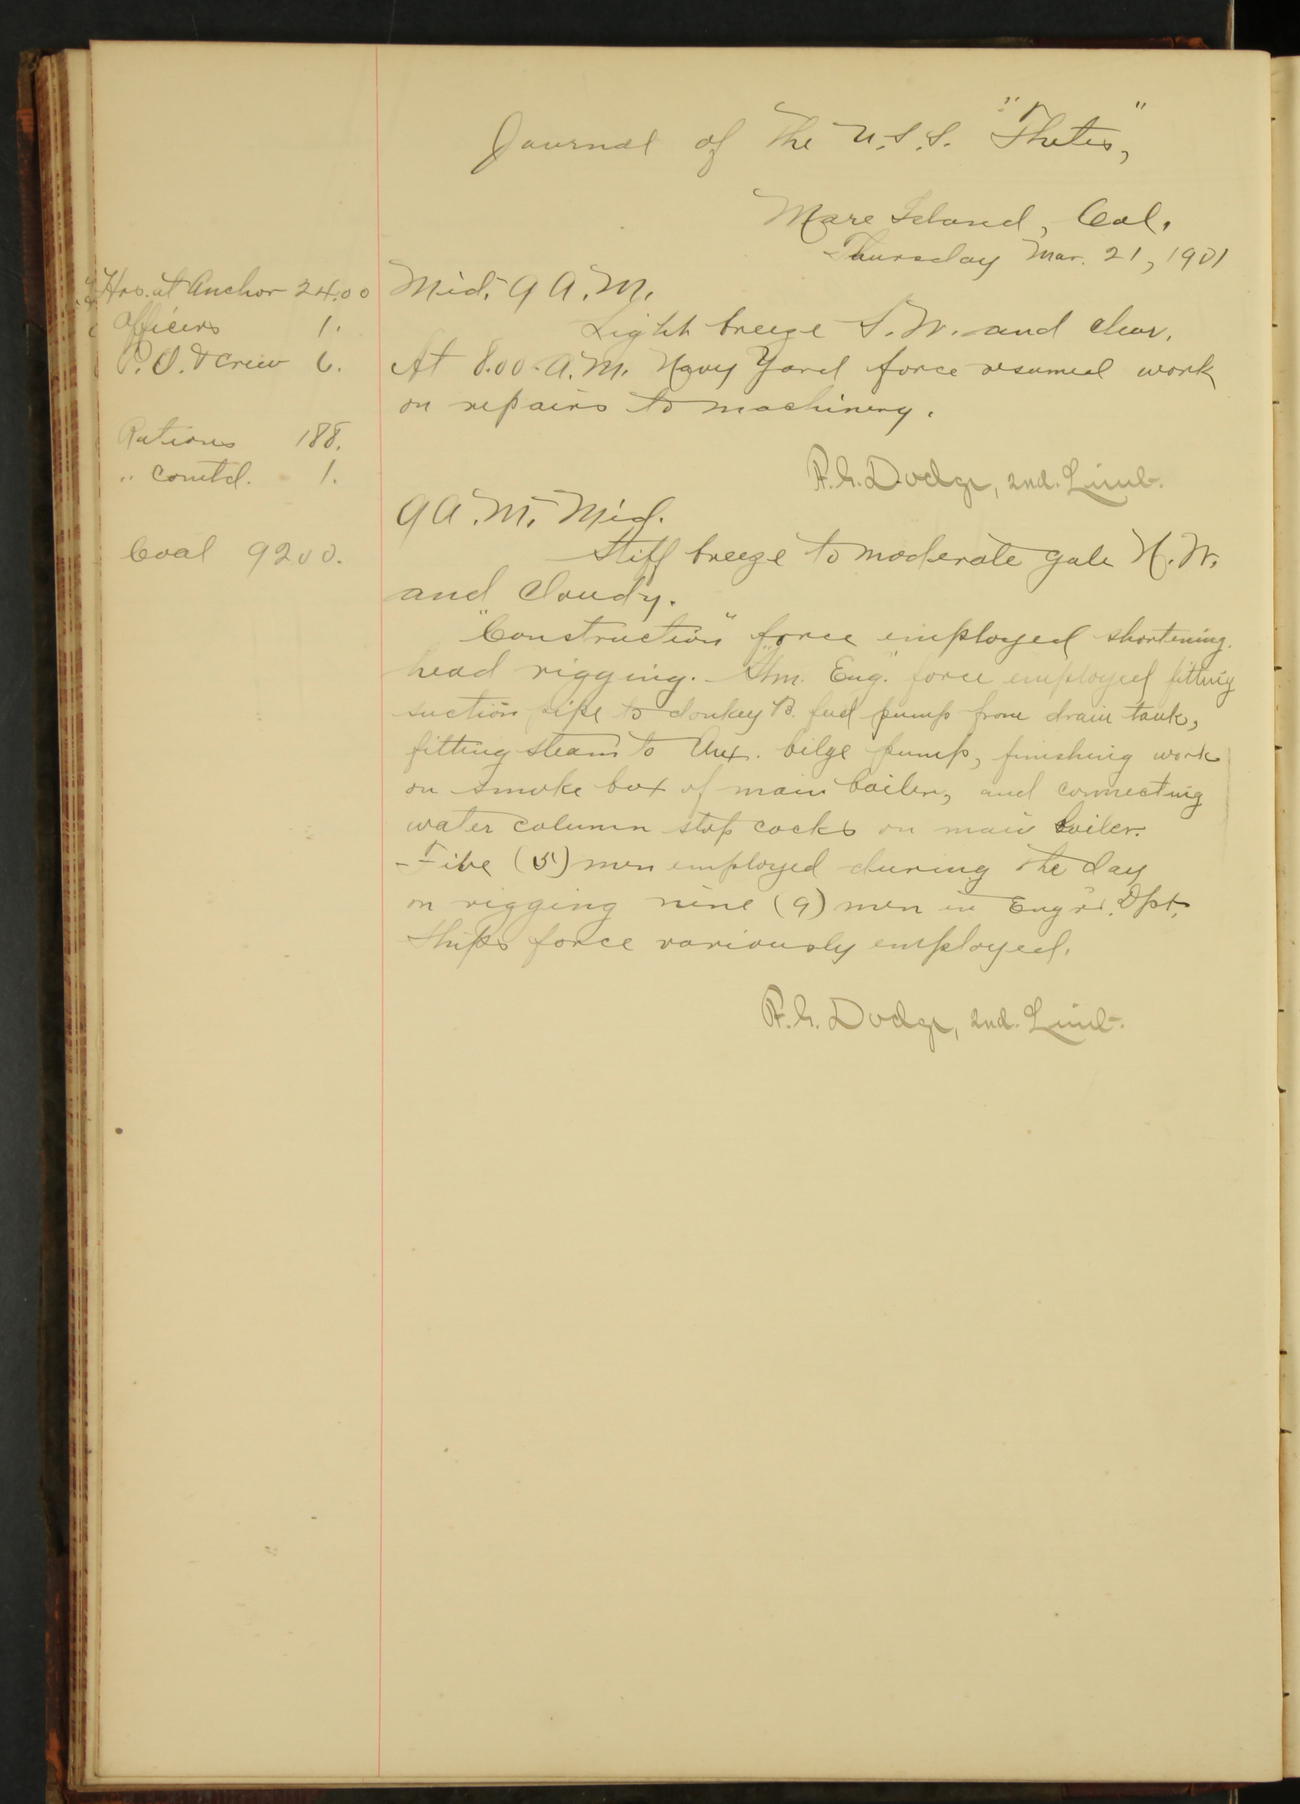 Journal of the U.S.S. "Thetis",
Mare Island, Cal.
Thursday Mar. 21, 1901
Hrs. at Anchor 24.00
Officers 1.
P.O. & Crew 6.
Rations 188.
" comtd. 1.
Coal 9200.
Mid. 9 A.M.
Light breeze S.W. and clear.
At 8.00 A.M. Navy Yard force resumed work
on repairs to machinery.
F.G. Dodge, 2nd. Lieut.
9 A.M. Mid.
Stiff breeze to moderate gale N.W.
and cloudy.
"Construction" force employed shortening
head rigging. "Stm. Eng." force employed fitting
suction pipe to donkey B. feed pump from drain tank,
fitting steam to Aux. bilge pump, finishing work
on smoke box of main boiler, and connecting
water column stop cocks on main boiler.
Five (5) men employed during the day
on rigging nine (9) men in Eng'r's. Dpt.
Ships force variously employed.
F.G. Dodge, 2nd. Lieut.